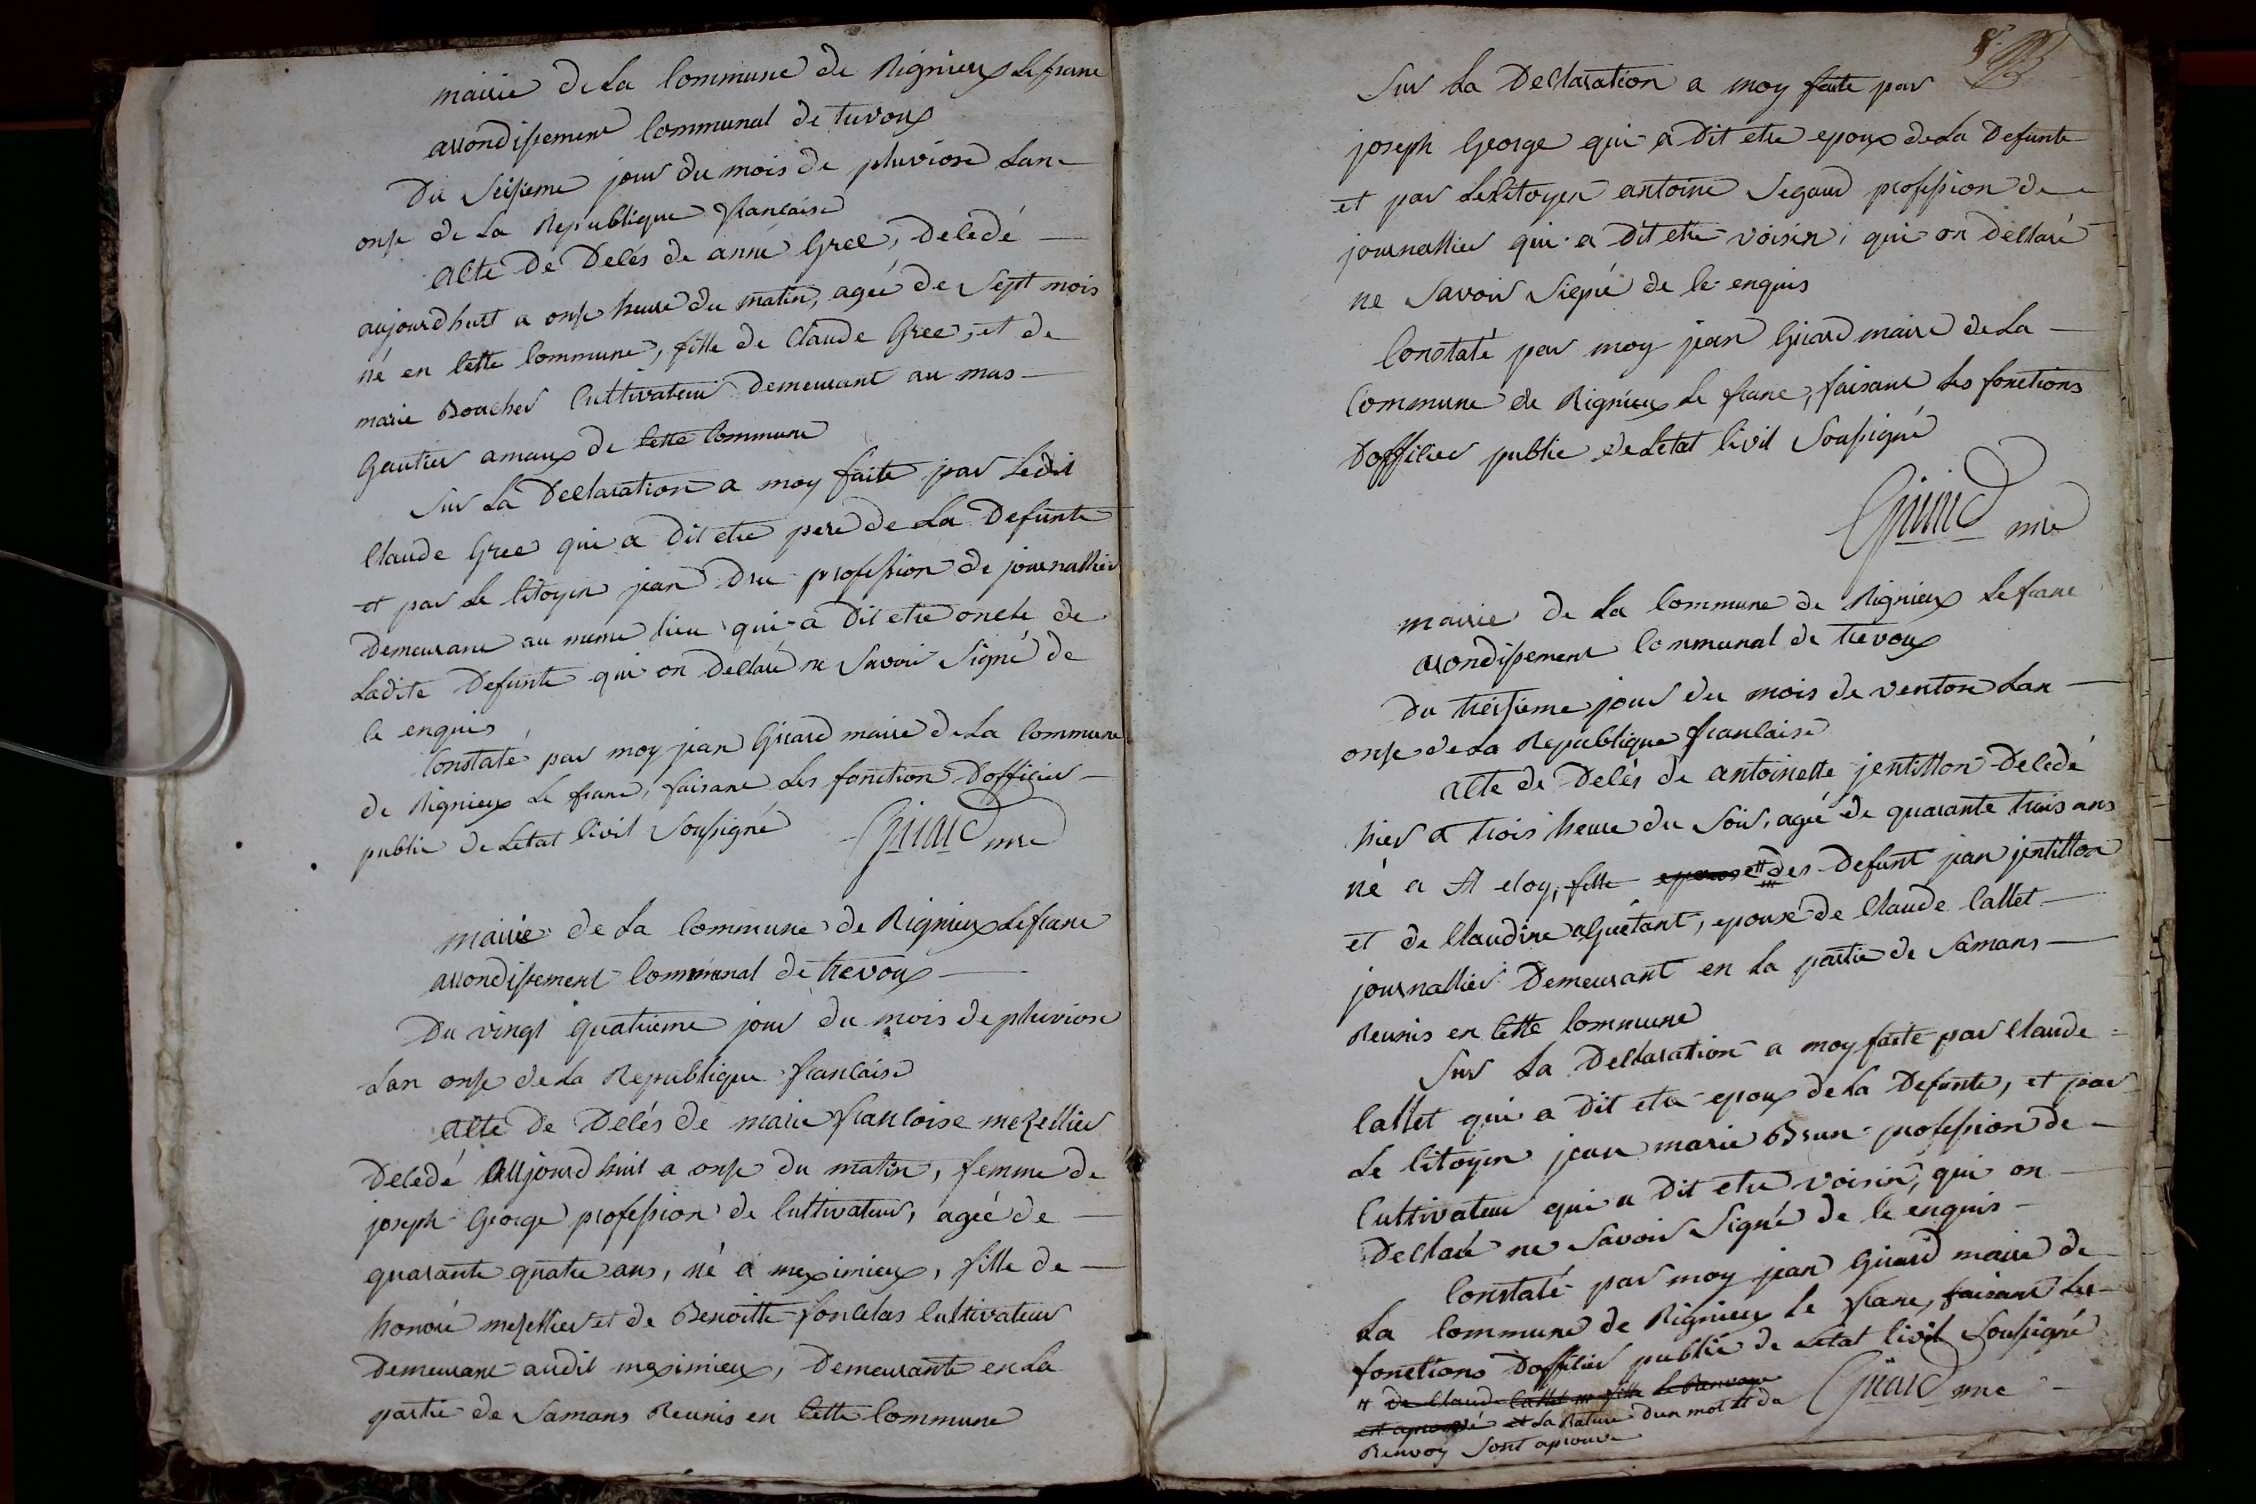 mairie de La Commune de Rignieux Lefranc
arrondissement Communal de trevoux
Du Seisieme jour du mois de pluviose Lan
onse de La Republique francaise
acte De Decés de anne Gree, Decedé
aujourdhuit a onse heure du matin, ageé de Sept mois
né en Cette Commune, fille de Claude Gree, et de
marie Boucher Cultivateur Demeurant au mas
Gautier amaux de Cette Commune
Sur La Declaration a moy faite par Ledit
Claude Gree qui a Dit etre pere de La Defunte
et par Le Citoyen jean Dru profession de journallier
Demeurant au meme lieu qui a Dit etre oncle de
Ladite Defunte qui on Declaré ne Savoir Signé de
Ce enquis
Constaté par moy jean Girard maire de La Commune
de Rignieux Le franc, faisant Les fonction Dofficier
public de Letat Civil Soussigné Girard mre
mairie de La Commune de Rignieux Lefranc
arrondissement Communal de trevoux
Du vingt quatrieme jour du mois de pluviose
Lan onse de La Republique francaise
acte de Decés de marie francoise mezellier
Decedé aujourdhuit a onse du matin, femme de
joseph George profession de Cultivateur, ageé de
quarante quatre ans, né a meximieux, fille de
honoré mezellier et de Benoitte fonclas Cultivateur
Demeurant audit meximieux, Demeurante en La
partie de Samans Reunis en Cette Commune
Sur La Declaration a moy faite par
joseph George qui a Dit etre epoux de La Defunte
et par Le Citoyen antoine Segaud profession de
journallier qui a Dit etre voisin, qui on Declaré
ne Savoir Signé de Ce enquis
Constaté par moy jean Girard maire de La
Commune de Rignieux Le franc, faisant Les fonctions
Dofficier public de Letat Civil Soussigné
Girard mre
mairie de La Commune de Rignieux Lefranc
arondissement Communal de trevoux
Du treisieme jour du mois de ventose Lan
onse de La Republique francaise
acte de Decés de antoinette jentillon Decedé
hier a trois heure du Soir, ageé de quarante trois ans
né a St eloy, fille epouse des Defunt jean jentillon
et de Claudine Guétant, epouse de Claude Callet
journallier Demeurant en La partie de Samans
Reunis en Cette Commune
Sur La Declaration a moy faite par Claude
Callet qui a Dit etre epoux de La Defunte, et par
Le Citoyen jean marie Brun profession de
Cultivateur qui a Dit etre voisin, qui on
Declaré ne Savoir Signé de Ce enquis
Constaté par moy jean Girard maire de
La Commune de Rignieux Le franc, faisant Les
fonctions Dofficier public de Letat Civil Soussigné
# de Claude Callet ## fille Le Renvoye
est aprouvé et La Rature Dun mot et du Girard mre
Renvoy Sont aprouvé